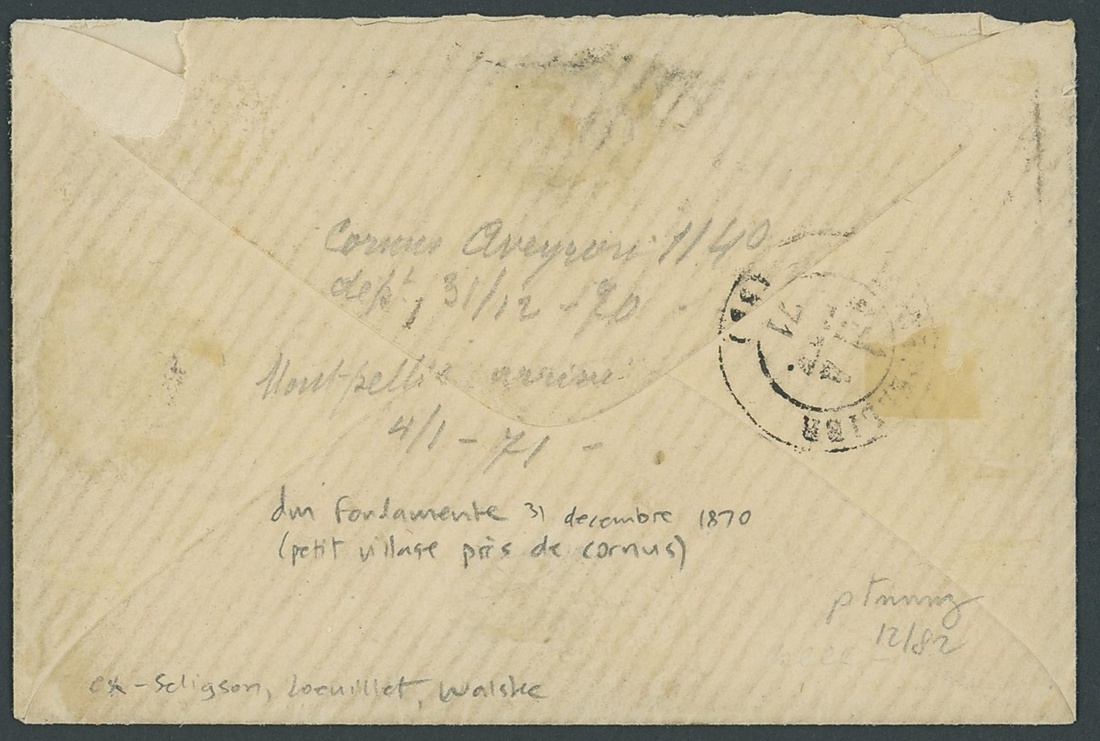 Cornus Aveyron 1/40
dept, 31/12 - 70 -
Montpellier arrivé
4/1 - 71 -
(33)
71
LLIER
dm Fondamente 31 decembre 1870
(petit village près de cornus)
12/82
ex - Seligson, Loeuillet, Walske